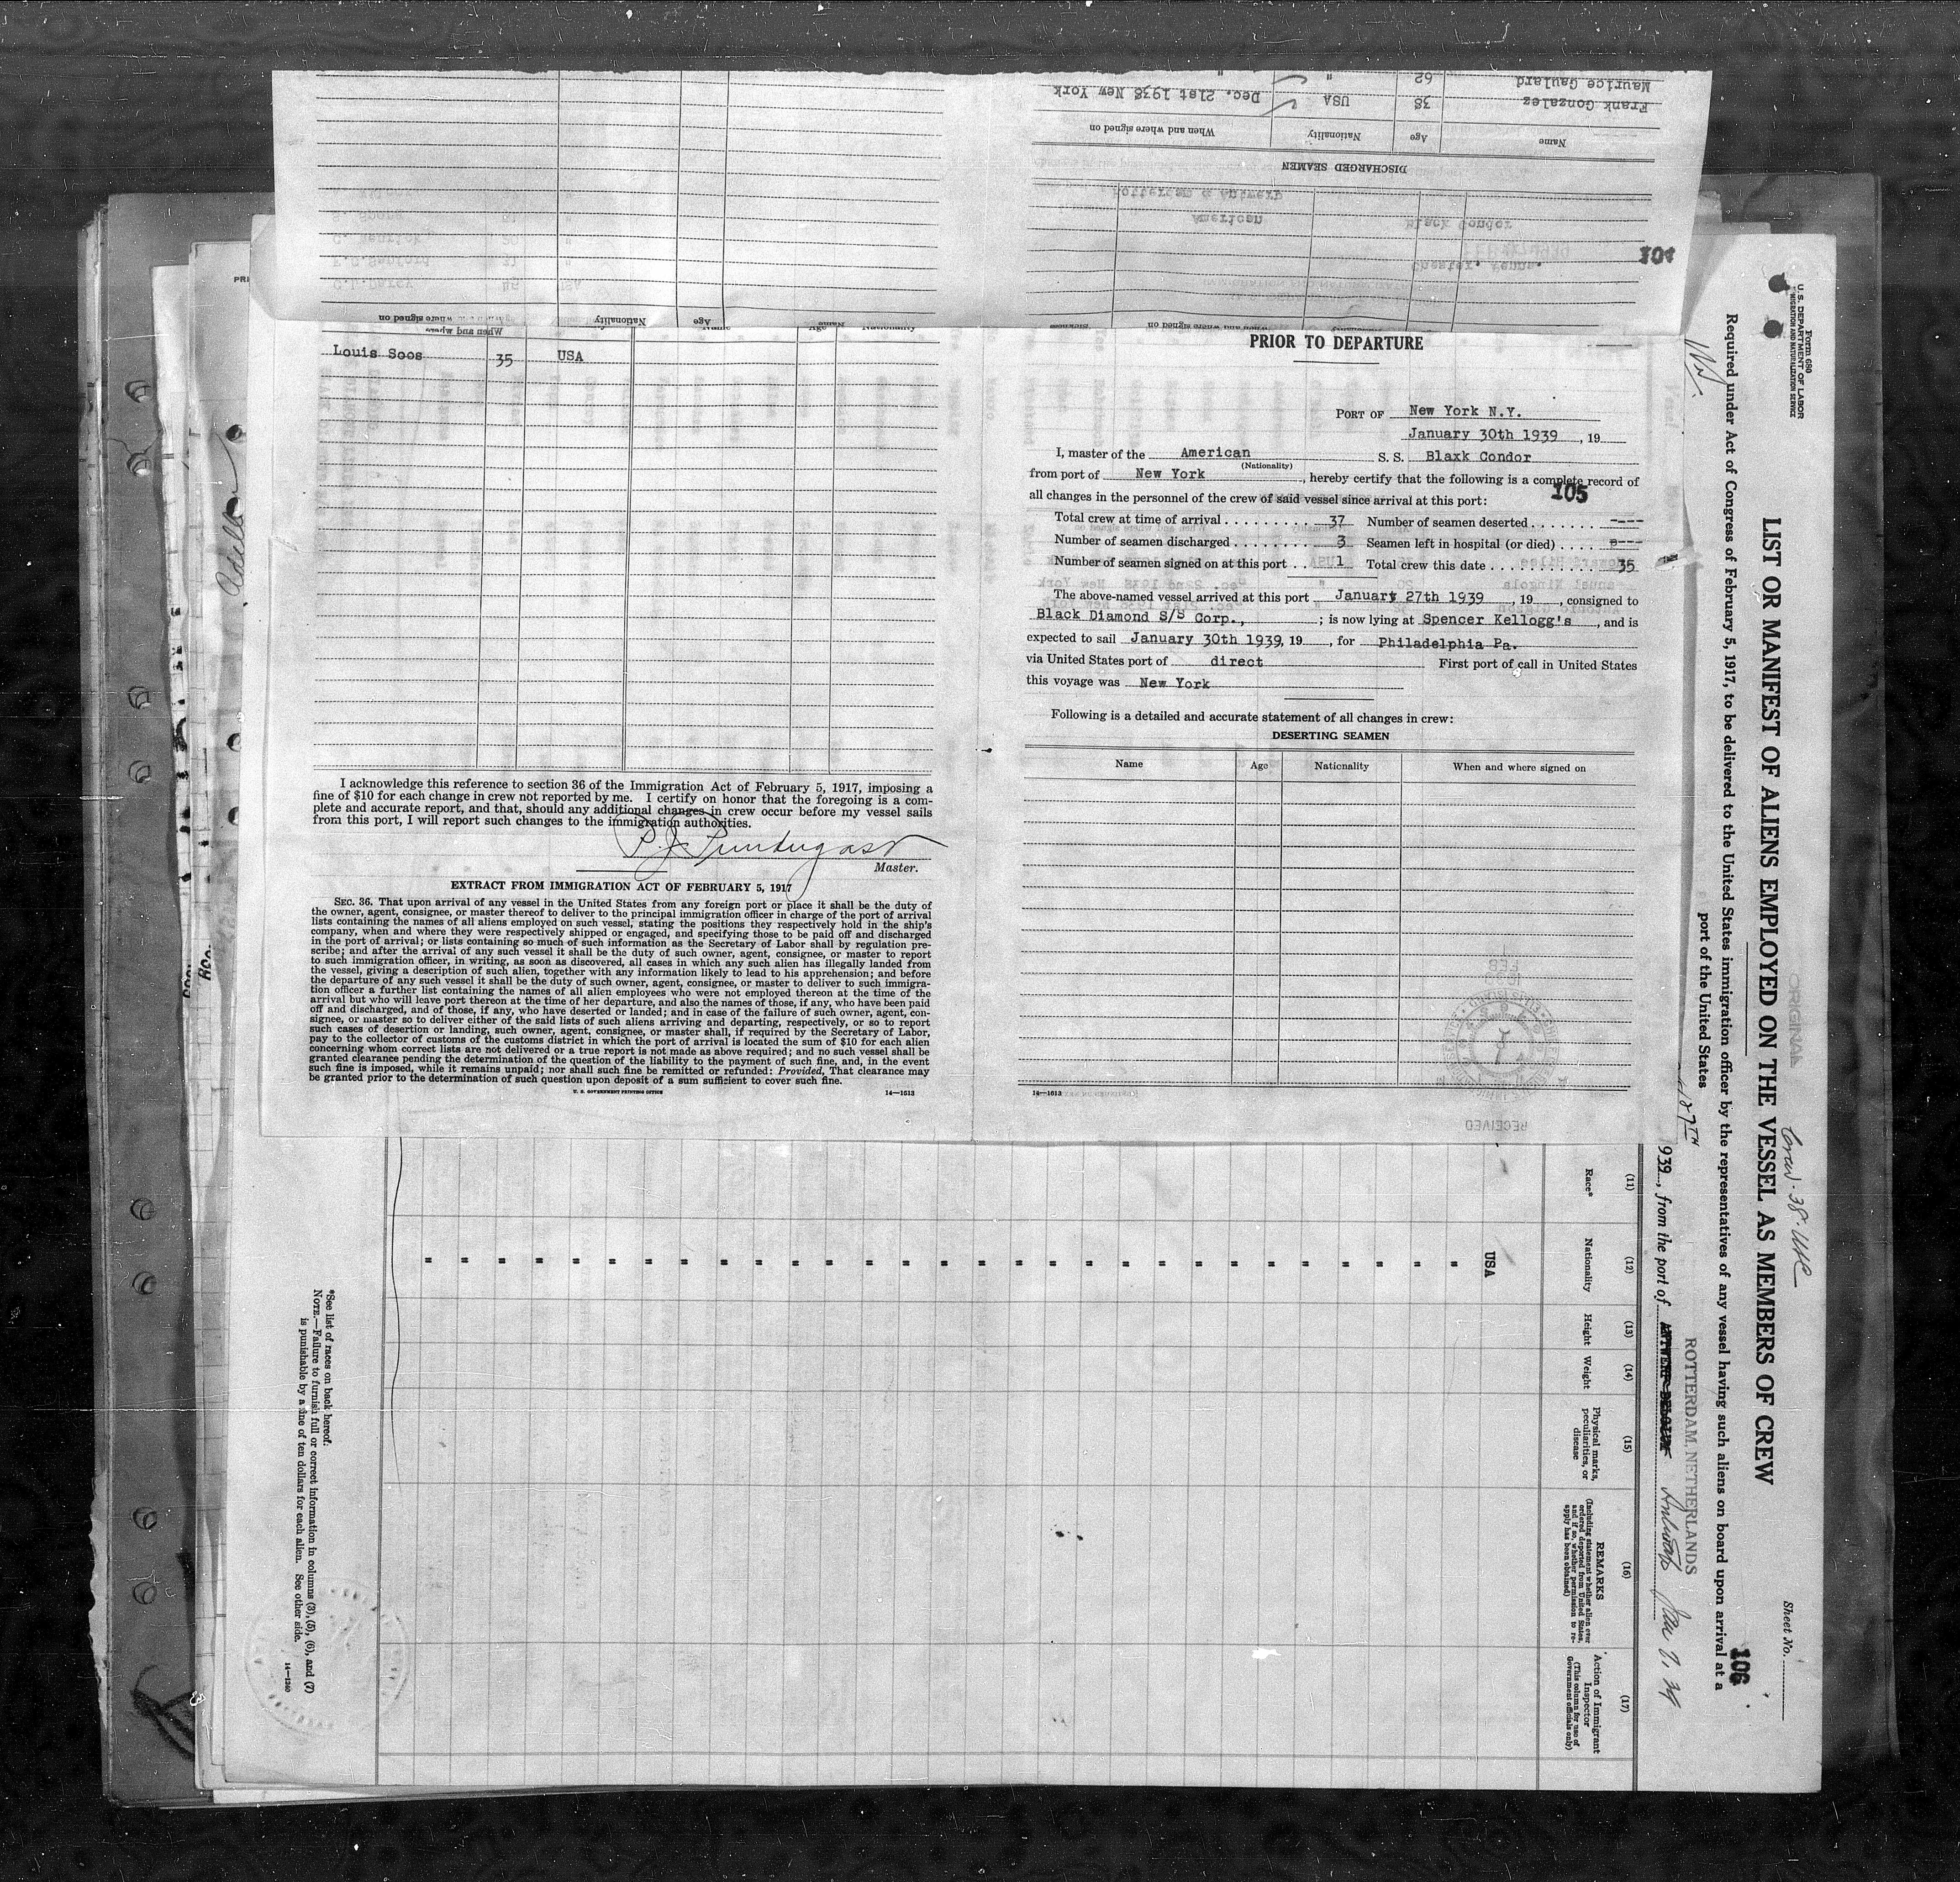 Maurice Gaulard 62 " "
Frank Gonzalez 38 USA Dec. 21st 1938 New York
Name Age Nationality When and where signed on
DISCHARGED SEAMEN
104
Louis Soos 35 USA
I acknowledge this reference to section 36 of the Immigration Act of February 5, 1917, imposing a
fine of $10 for each change in crew not reported by me. I certify on honor that the foregoing is a com-
plete and accurate report, and that, should any additional changes in crew occur before my vessel sails
from this port, I will report such changes to the immigration authorities.
Master.
EXTRACT FROM IMMIGRATION ACT OF FEBRUARY 5, 1917
SEC. 36. That upon arrival of any vessel in the United States from any foreign port or place it shall be the duty of
the owner, agent, consignee, or master thereof to deliver to the principal immigration officer in charge of the port of arrival
lists containing the names of all aliens employed on such vessel, stating the positions they respectively hold in the ship's
company, when and where they were respectively shipped or engaged, and specifying those to be paid off and discharged
in the port of arrival; or lists containing so much of such information as the Secretary of Labor shall by regulation pre-
scribe; and after the arrival of any such vessel it shall be the duty of such owner, agent, consignee, or master to report
to such immigration officer, in writing, as soon as discovered, all cases in which any such alien has illegally landed from
the vessel, giving a description of such alien, together with any information likely to lead to his apprehension; and before
the departure of any such vessel it shall be the duty of such owner, agent, consignee, or master to deliver to such immigra-
tion officer a further list containing the names of all alien employees who were not employed thereon at the time of the
arrival but who will leave port thereon at the time of her departure, and also the names of those, if any, who have been paid
off and discharged, and of those, if any, who have deserted or landed; and in case of the failure of such owner, agent, con-
signee, or master so to deliver either of the said lists of such aliens arriving and departing, respectively, or so to report
such cases of desertion or landing, such owner, agent, consignee, or master shall, if required by the Secretary of Labor,
pay to the collector of customs of the customs district in which the port of arrival is located the sum of $10 for each alien
concerning whom correct lists are not delivered or a true report is not made as above required; and no such vessel shall be
granted clearance pending the determination of the question of the liability to the payment of such fine, and, in the event
such fine is imposed, while it remains unpaid; nor shall such fine be remitted or refunded: Provided, That clearance may
be granted prior to the determination of such question upon deposit of a sum sufficient to cover such fine.
U. S. GOVERNMENT PRINTING OFFICE 14—1613
PRIOR TO DEPARTURE
PORT OF New York N.Y.
January 30th 1939, 19
I, master of the American S. S. Blaxk Condor
(Nationality)
from port of New York, hereby certify that the following is a complete record of
105
all changes in the personnel of the crew of said vessel since arrival at this port:
Total crew at time of arrival . . . . . . . . . 37 Number of seamen deserted . . . . . . . ----
Number of seamen discharged . . . . . . . 3 Seamen left in hospital (or died) . . . .
Number of seamen signed on at this port . . 1 Total crew this date . . . . . . . . . . . 35
The above-named vessel arrived at this port January 27th 1939, 19, consigned to
Black Diamond S/S Corp., ; is now lying at Spencer Kellogg's, and is
expected to sail January 30th 1939, 19, for Philadelphia Pa.
via United States port of direct First port of call in United States
this voyage was New York
Following is a detailed and accurate statement of all changes in crew:
DESERTING SEAMEN
Name Age Nationality When and where signed on
14—1613
RECEIVED
Form 680
U. S. DEPARTMENT OF LABOR
IMMIGRATION AND NATURALIZATION SERVICE
ORIGINAL
Sheet No.
LIST OR MANIFEST OF ALIENS EMPLOYED ON THE VESSEL AS MEMBERS OF CREW
106
Required under Act of Congress of February 5, 1917, to be delivered to the United States immigration officer by the representatives of any vessel having such aliens on board upon arrival at a
port of the United States
ROTTERDAM, NETHERLANDS
27TH 939, from the port of
(11) (12) (13) (14) (15) (16) (17)
Race* Nationality Height Weight Physical marks, peculiarities, or disease
REMARKS
(Including statement whether alien ever ordered deported from United States, and if so, whether permission to re-apply has been obtained)
Action of Immigrant Inspector
(This column for use of Government officials only)
USA
*See list of races on back hereof.
NOTE.—Failure to furnish full or correct information in columns (3), (5), (6), and (7)
is punishable by a fine of ten dollars for each alien. See other side.
14—1240